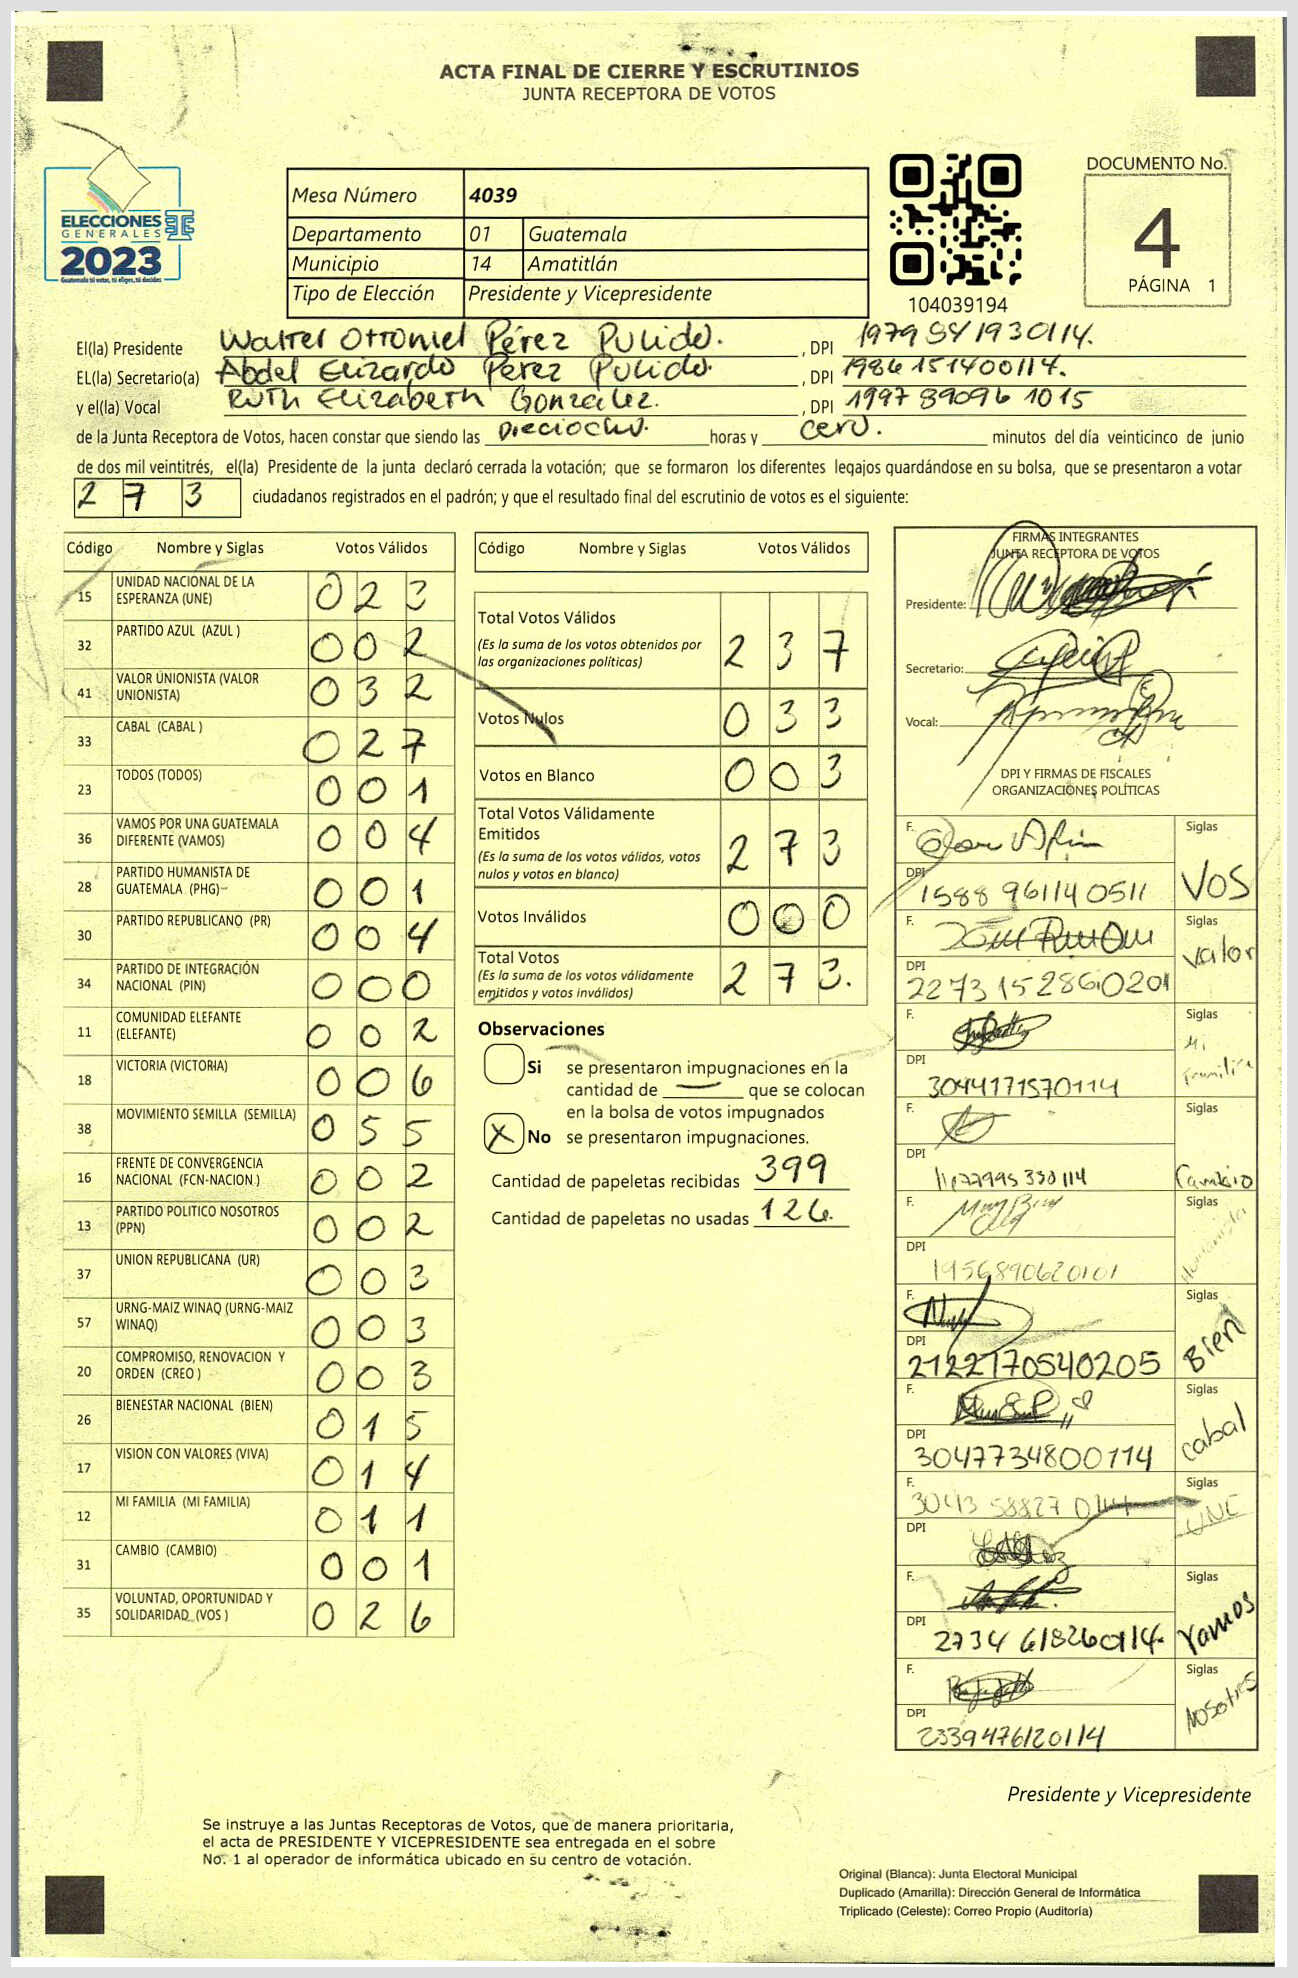 ACTA FINAL DE CIERRE Y ESCRUTINIOS
JUNTA RECEPTORA DE VOTOS
ELECCIONES
GENERALES
2023
Guatemala tú votas, tú eliges, tú decides
Mesa Número 4039
Departamento 01 Guatemala
Municipio 14 Amatitlán
Tipo de Elección Presidente y Vicepresidente
104039194
DOCUMENTO No.
4
PÁGINA 1
El(la) Presidente Walter Ottoniel Pérez Pulido. , DPI 1979 841930114.
EL(la) Secretario(a) Abdel Elizardo Pérez Pulido. , DPI 1986 151400114.
y el(la) Vocal Ruth Elizabeth González. , DPI 1997 89096 1015
de la Junta Receptora de Votos, hacen constar que siendo las Dieciocho. horas y cero. minutos del día veinticinco de junio
de dos mil veintitrés, el(la) Presidente de la junta declaró cerrada la votación; que se formaron los diferentes legajos guardándose en su bolsa, que se presentaron a votar
2 7 3 ciudadanos registrados en el padrón; y que el resultado final del escrutinio de votos es el siguiente:
Código Nombre y Siglas Votos Válidos
15 UNIDAD NACIONAL DE LA ESPERANZA (UNE) 0 2 3
32 PARTIDO AZUL (AZUL ) 0 0 2
41 VALOR UNIONISTA (VALOR UNIONISTA) 0 3 2
33 CABAL (CABAL ) 0 2 7
23 TODOS (TODOS) 0 0 1
36 VAMOS POR UNA GUATEMALA DIFERENTE (VAMOS) 0 0 4
28 PARTIDO HUMANISTA DE GUATEMALA (PHG) 0 0 1
30 PARTIDO REPUBLICANO (PR) 0 0 4
34 PARTIDO DE INTEGRACIÓN NACIONAL (PIN) 0 0 0
11 COMUNIDAD ELEFANTE (ELEFANTE) 0 0 2
18 VICTORIA (VICTORIA) 0 0 6
38 MOVIMIENTO SEMILLA (SEMILLA) 0 5 5
16 FRENTE DE CONVERGENCIA NACIONAL (FCN-NACION ) 0 0 2
13 PARTIDO POLITICO NOSOTROS (PPN) 0 0 2
37 UNION REPUBLICANA (UR) 0 0 3
57 URNG-MAIZ WINAQ (URNG-MAIZ WINAQ) 0 0 3
20 COMPROMISO, RENOVACION Y ORDEN (CREO ) 0 0 3
26 BIENESTAR NACIONAL (BIEN) 0 1 5
17 VISION CON VALORES (VIVA) 0 1 4
12 MI FAMILIA (MI FAMILIA) 0 1 1
31 CAMBIO (CAMBIO) 0 0 1
35 VOLUNTAD, OPORTUNIDAD Y SOLIDARIDAD (VOS ) 0 2 6
Código Nombre y Siglas Votos Válidos
Total Votos Válidos 2 3 7
(Es la suma de los votos obtenidos por
las organizaciones políticas)
Votos Nulos 0 3 3
Votos en Blanco 0 0 3
Total Votos Válidamente
Emitidos 2 7 3
(Es la suma de los votos válidos, votos
nulos y votos en blanco)
Votos Inválidos 0 0 0
Total Votos 2 7 3.
(Es la suma de los votos válidamente
emitidos y votos inválidos)
Observaciones
Si se presentaron impugnaciones en la
cantidad de — que se colocan
en la bolsa de votos impugnados
X No se presentaron impugnaciones.
Cantidad de papeletas recibidas 399
Cantidad de papeletas no usadas 126.
FIRMAS INTEGRANTES
JUNTA RECEPTORA DE VOTOS
Presidente:
Secretario:
Vocal:
DPI Y FIRMAS DE FISCALES
ORGANIZACIONES POLÍTICAS
F. Siglas VOS
DPI 1588 96114 0511
F. Siglas Valor
DPI 2273 15286 0201
F. Siglas Mi Familia
DPI 3044171570114
F. Siglas Cambio
DPI
F. Siglas Humanista
DPI 1956890620101
F. Siglas Bien
DPI 2122170540205
F. Siglas Cabal
DPI 3047734800114
F. 3043 58827 0114 Siglas UNE
DPI
F. Siglas Vamos
DPI 2734 618260114.
F. Siglas Nosotros
DPI 2339476120114
Presidente y Vicepresidente
Se instruye a las Juntas Receptoras de Votos, que de manera prioritaria,
el acta de PRESIDENTE Y VICEPRESIDENTE sea entregada en el sobre
No. 1 al operador de informática ubicado en su centro de votación.
Original (Blanca): Junta Electoral Municipal
Duplicado (Amarilla): Dirección General de Informática
Triplicado (Celeste): Correo Propio (Auditoría)